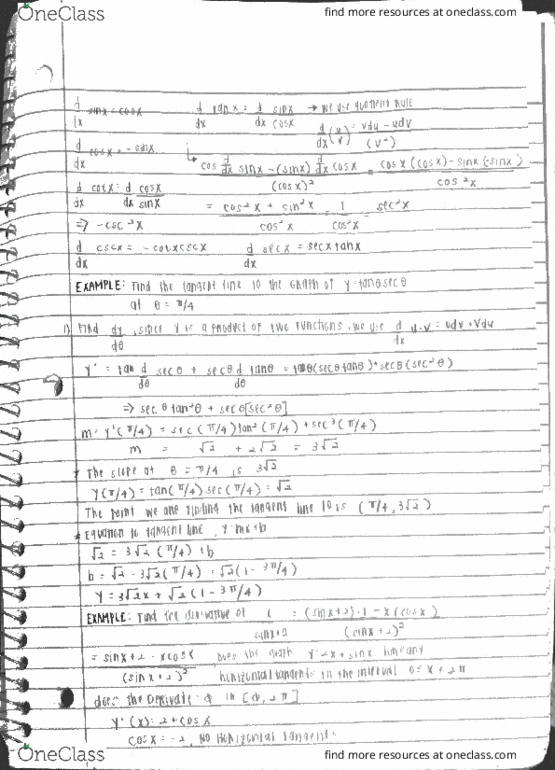 OneClass find more resources at oneclass.com
d/dx sinx = cosx d/dx tanx = d/dx sinx/cosx → we use quotient rule
d/dx cosx = -sinx d/dx (u/v) = vdu - udv / (v²)
cosx d/dx sinx - (sinx) d/dx cosx / (cosx)² = cosx (cosx) - sinx (-sinx) / cos²x
d/dx cotx = d/dx cosx/sinx = cos²x + sin²x / cos²x = 1/cos²x = sec²x
⇒ -csc²x
d/dx cscx = -cotxcscx d/dx secx = secxtanx
EXAMPLE: Find the tangent line to the graph of y=tanθsecθ
at θ = π/4
1) Find dy/dθ, since y is a product of two functions, we use d/dx u·v = udv + vdu
y' = tan d/dθ secθ + secθ d/dθ tanθ = tanθ(secθtanθ) + secθ(sec²θ)
⇒ sec θ tan²θ + sec θ[sec²θ]
m = y'(π/4) = sec(π/4)tan²(π/4) + sec³(π/4)
m = √2 + 2√2 = 3√2
* The slope at θ = π/4 is 3√2
y(π/4) = tan(π/4) sec(π/4) = √2
The point we are finding the tangent line to is (π/4, 3√2)
* Equation to tangent line, y=mx+b
√2 = 3√2 (π/4) + b
b = √2 - 3√2(π/4) = √2(1 - 3π/4)
y = 3√2x + √2(1 - 3π/4)
EXAMPLE: Find the derivative of x/sinx+2 = (sinx+2)·1 - x(cosx) / (sinx+2)²
= sinx+2 - xcosx / (sinx+2)² Does the graph y=2x+sinx have any
horizontal tangents in the interval 0≤x≤2π
does the Derivate in [0, 2π]
y'(x) = 2+cosx
cosx = -2, No Horizontal tangents.
OneClass find more resources at oneclass.com